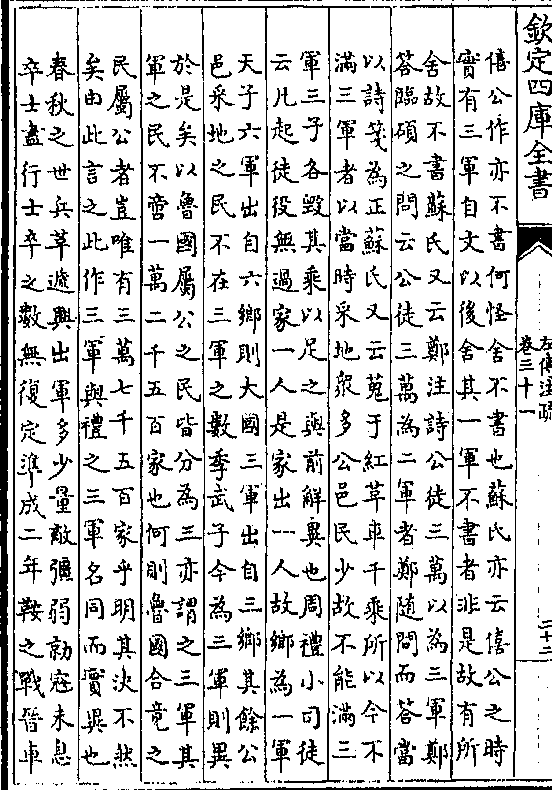 欽定四庫全書
左傳注疏
卷三十一
二十二
僖公作亦不書何怪舍不書也蘇氏亦云僖公之時
實有三軍自文以後舍其一軍不書者非是故有所
舍故不書蘇氏又云鄭注詩公徒三萬以為三軍鄭
答臨碩之問云公徒三萬為二軍者鄭隨問而答當
以詩箋為正蘇氏又云蒐于紅革車千乘所以今不
滿三軍者以當時采地衆多公邑民少故不能滿三
軍三子各毀其乘以足之與前解異也周禮小司徒
云凡起徒役無過家一人是家出一人故鄉為一軍
天子六軍出自六鄉則大國三軍出自三鄉其餘公
邑采地之民不在三軍之數季武子今為三軍則異
於是矣以魯國屬公之民皆分為三亦謂之三軍其
軍之民不啻一萬二千五百家也何則魯國合竟之
民屬公者豈唯有三萬七千五百家乎明其決不然
矣由此言之此作三軍與禮之三軍名同而實異也
春秋之世兵革遞興出軍多少量敵彊弱勍寇未息
卒士盡行士卒之數無復定準成二年鞍之戰晉車